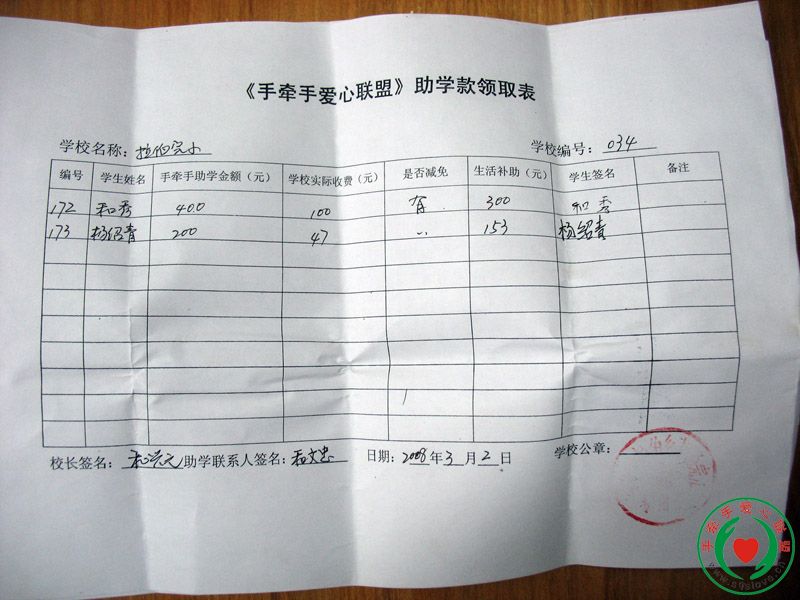 《手牵手爱心联盟》助学款领取表
学校名称：拉伯完小 学校编号：034
编号 学生姓名 手牵手助学金额（元） 学校实际收费（元） 是否减免 生活补助（元） 学生签名 备注
172 和秀 400 100 有 300 和秀
173 杨绍青 200 47 〃 153 杨绍青
校长签名： 助学联系人签名：和文忠 日期：2008年3月2日 学校公章：
手牵手爱心联盟